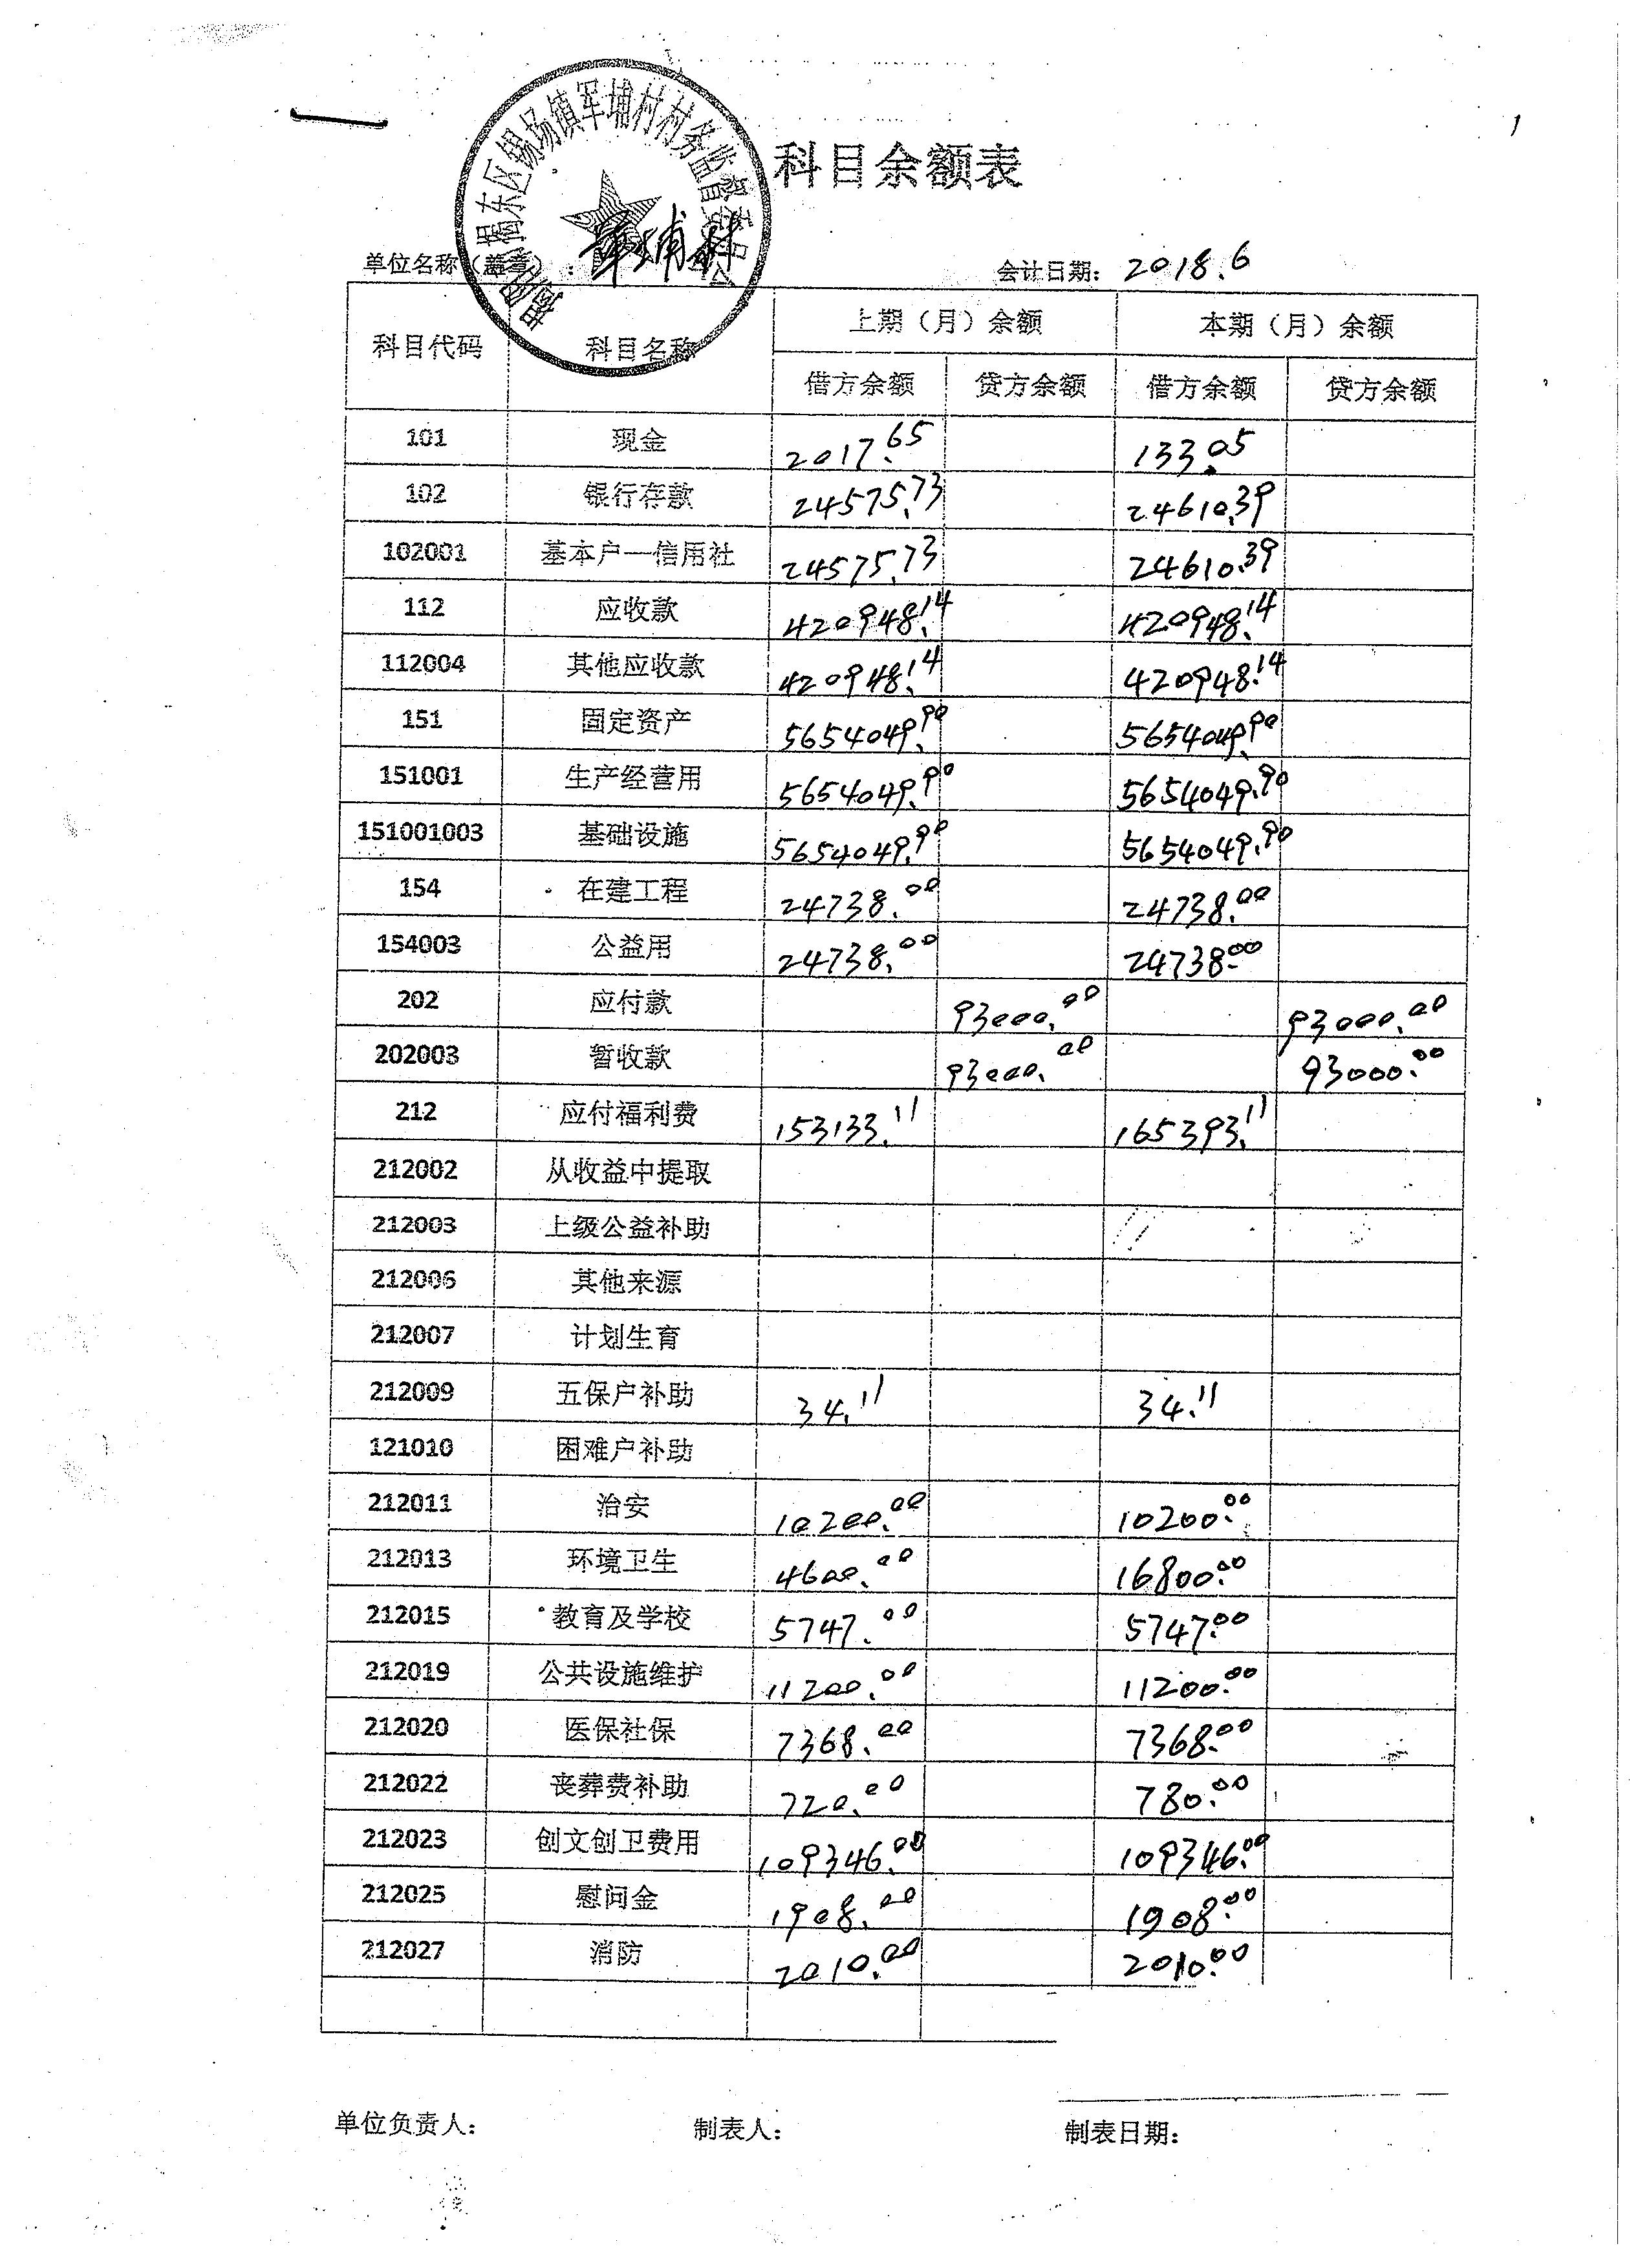 1
揭阳揭东区锡场镇军埔村村务监督委员会
科目余额表
单位名称（盖章）：军埔村 会计日期：2018.6
科目代码 科目名称 上期（月）余额 本期（月）余额
借方余额 贷方余额 借方余额 贷方余额
101 现金 2017.65 133.05
102 银行存款 24575.73 24610.39
102001 基本户一信用社 24575.73 24610.39
112 应收款 420948.14 420948.14
112004 其他应收款 420948.14 420948.14
151 固定资产 5654049.90 5654049.90
151001 生产经营用 5654049.90 5654049.90
151001003 基础设施 5654049.90 5654049.90
154 在建工程 24738.00 24738.00
154003 公益用 24738.00 24738.00
202 应付款 93000.00 93000.00
202003 暂收款 93000.00 93000.00
212 应付福利费 153133.11 165393.11
212002 从收益中提取
212003 上级公益补助
212006 其他来源
212007 计划生育
212009 五保户补助 34.11 34.11
121010 困难户补助
212011 治安 10200.00 10200.00
212013 环境卫生 4600.00 16800.00
212015 教育及学校 5747.00 5747.00
212019 公共设施维护 11200.00 11200.00
212020 医保社保 7368.00 7368.00
212022 丧葬费补助 720.00 780.00
212023 创文创卫费用 109346.00 109346.00
212025 慰问金 1908.00 1908.00
212027 消防 2010.00 2010.00
单位负责人： 制表人： 制表日期：